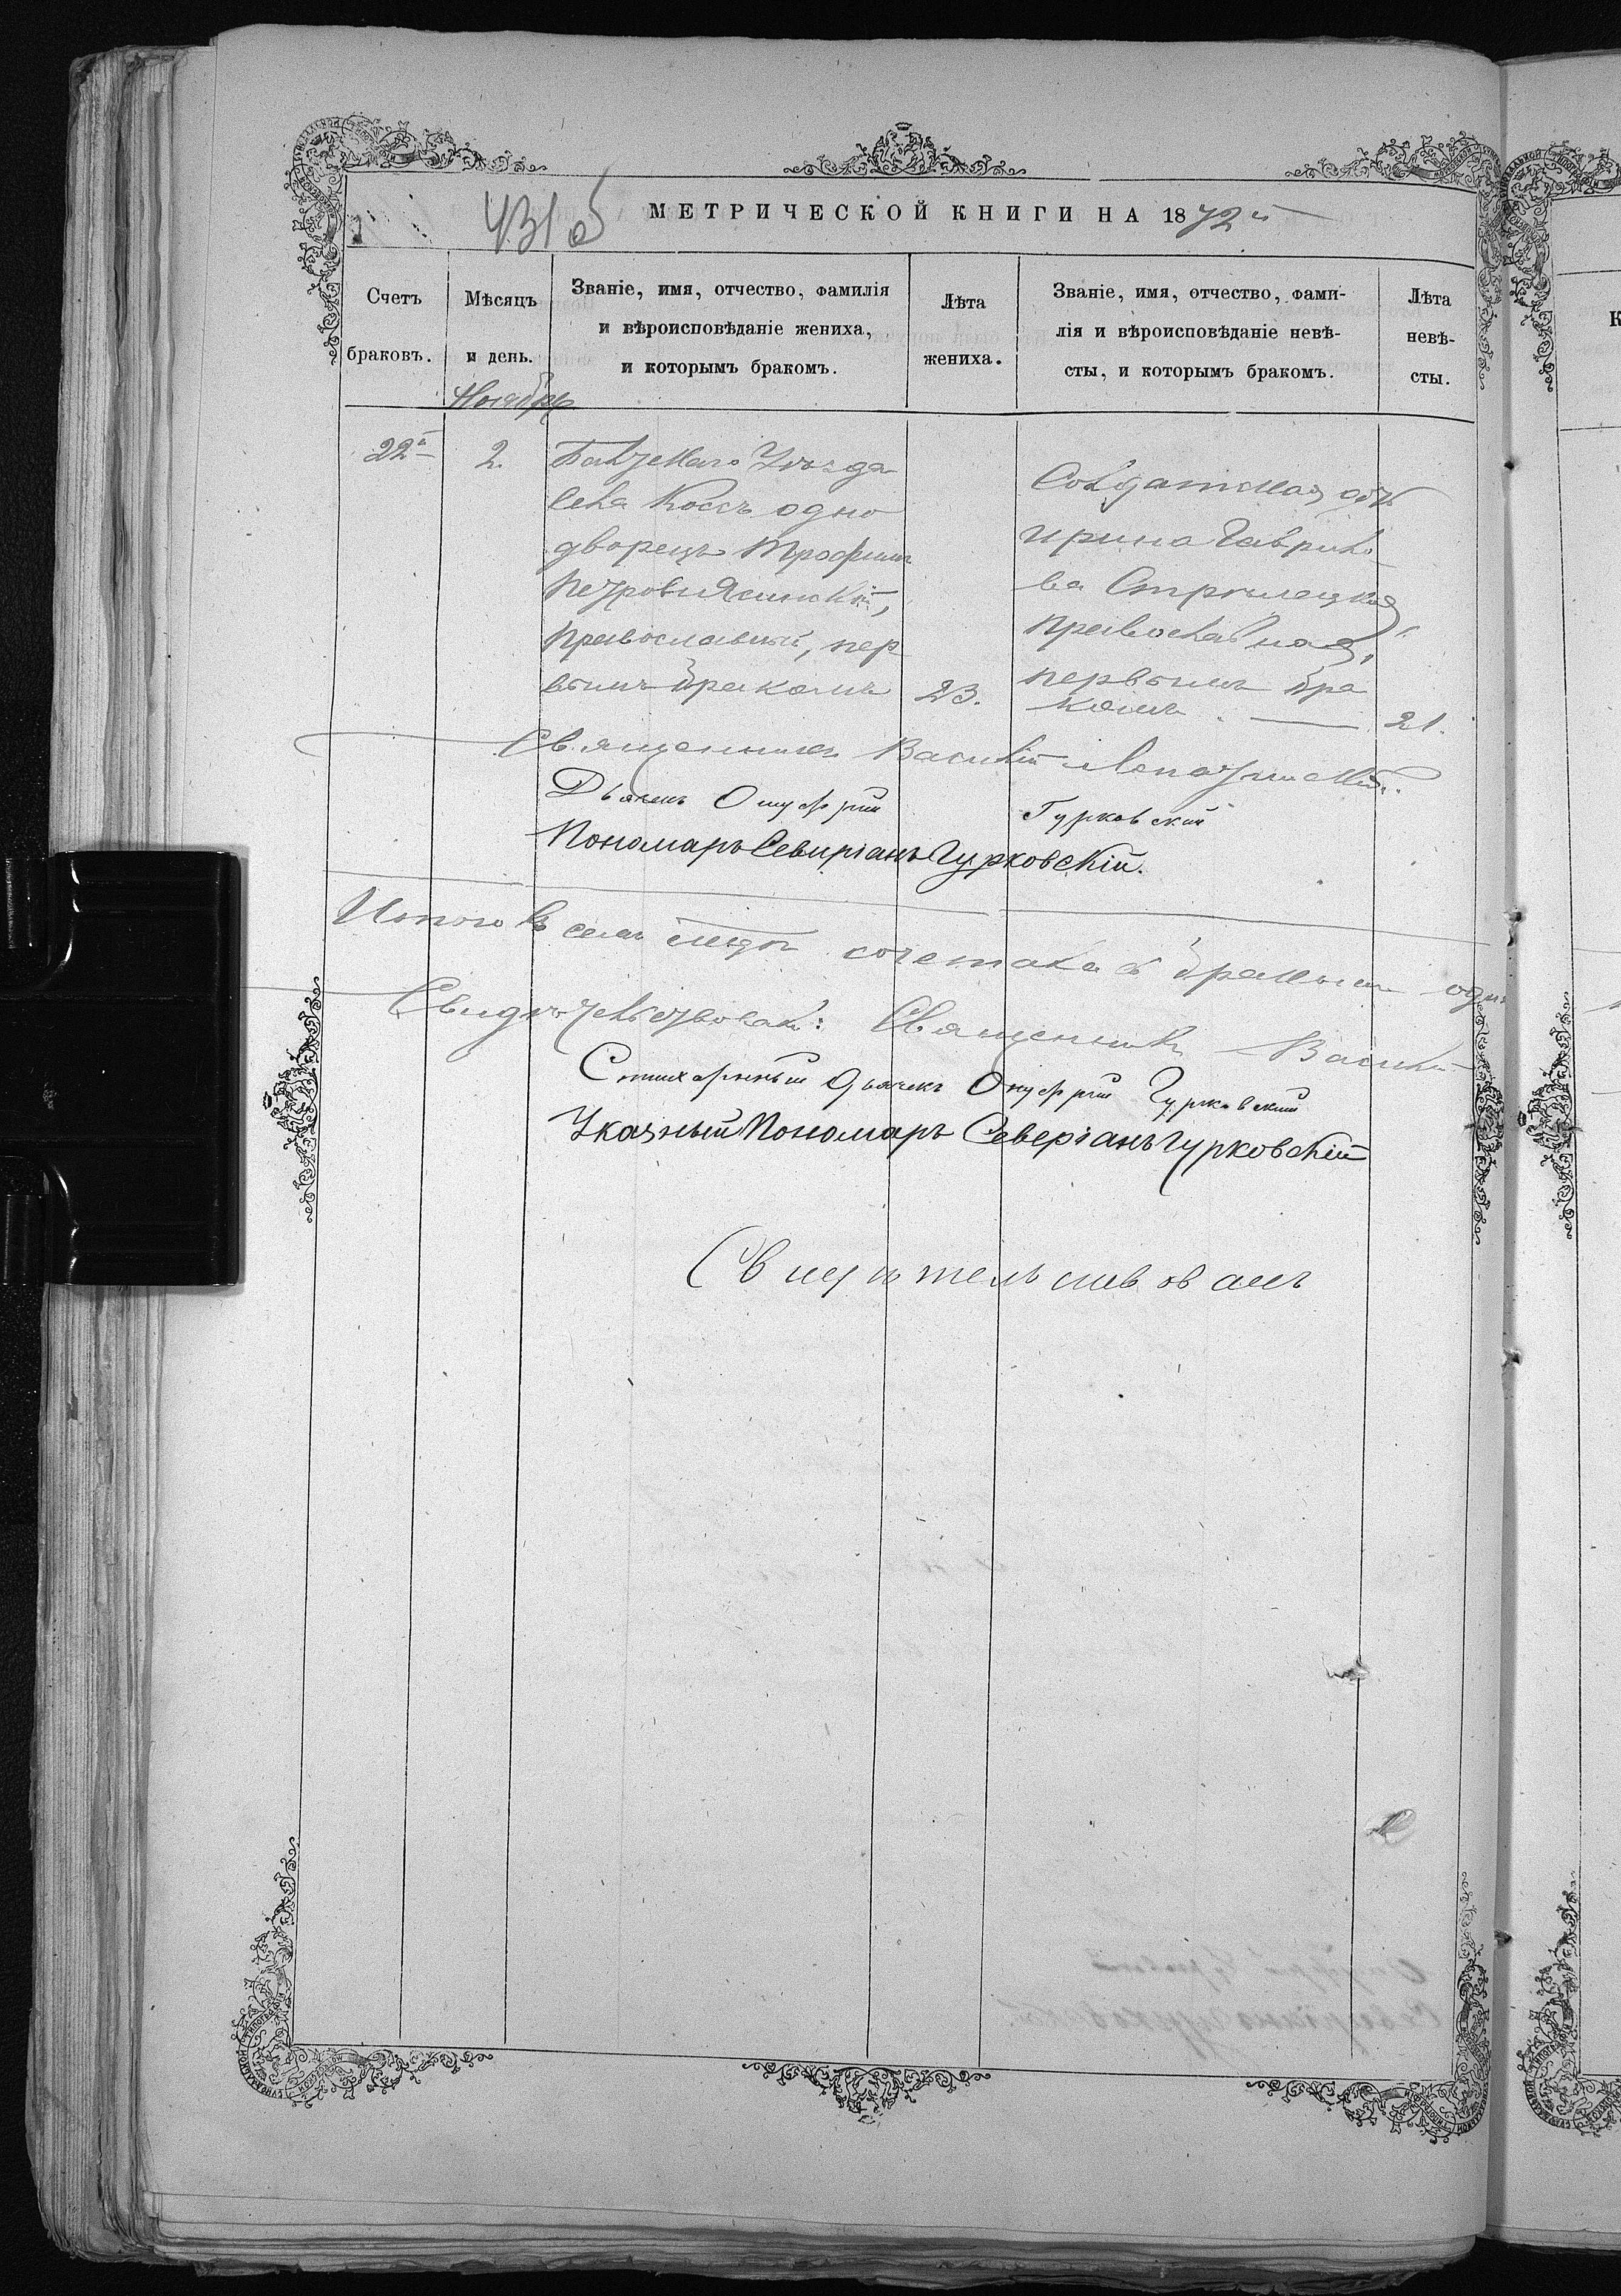 431 об
МЕТРИЧЕСКОЙ КНИГИ НА 1872й
Счетъ браковъ.
Мѣсяцъ и день.
Званіе, имя, отчество, фамилія
и вѣроисповѣданіе жениха,
и которымъ бракомъ.
Лѣта жениха.
Званіе, имя, отчество, фами-
лія и вѣроисповѣданіе невѣ-
сты, и которымъ бракомъ.
Лѣта невѣ-
сты.
Ноября
22й
2.
Балтскаго Уѣзда
села Коссъ одно
дворецъ Трофимъ
Петровъ Ясинскій,
православный, пер
вымъ бракомъ
23.
Солдатская дочь
Ирина Гаврило
ва Стрилецкая
православная,
первымъ бра
комъ.
21.
Священникъ Василій
Дьячекъ Онуфрій Гурковскій
Пономарь Севиріанъ Гурковскій.
Итого въ семъ сочетался бракомъ
Свидѣтельствовали: Священникъ Василій
Стихарный Дьячекъ Онуфрій Гурковскій
Указный Пономарь Северіанъ Гурковскій
Свидѣтельствовалъ